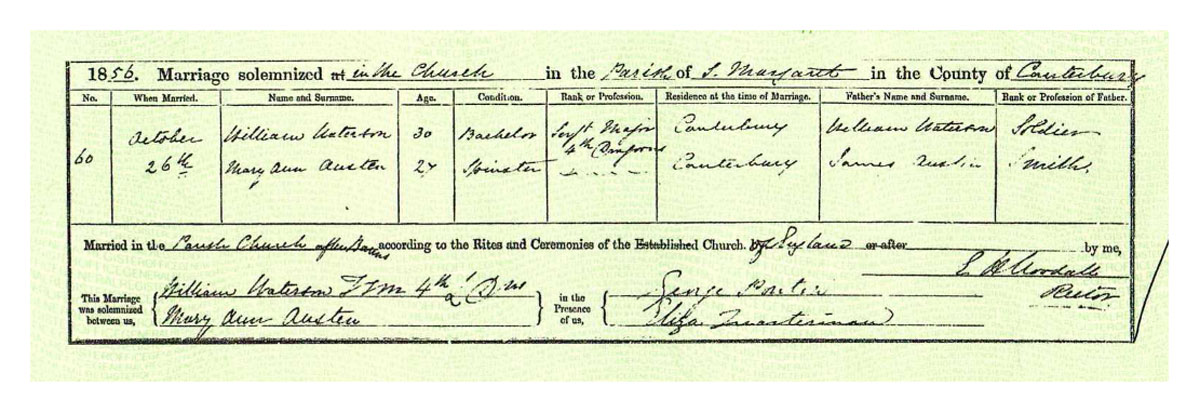 1856. Marriage solemnized at in the Church in the Parish of S. Margaret in the County of Canterbury
No. When Married. Name and Surname. Age. Condition. Rank or Profession. Residence at the time of Marriage. Father's Name and Surname. Rank or Profession of Father.
60 October 26th William Waterson 30 Bachelor Serjt Major 4th Dragoons Canterbury William Waterson Soldier
Mary Ann Austen 27 Spinster Canterbury James Austin Smith.
Married in the Parish Church after Banns according to the Rites and Ceremonies of the Established Church. of England or after by me,
Rector
This Marriage was solemnized between us,
William Waterson 4th
Mary Ann Austen
in the Presence of us,
George
Eliza Quarterman